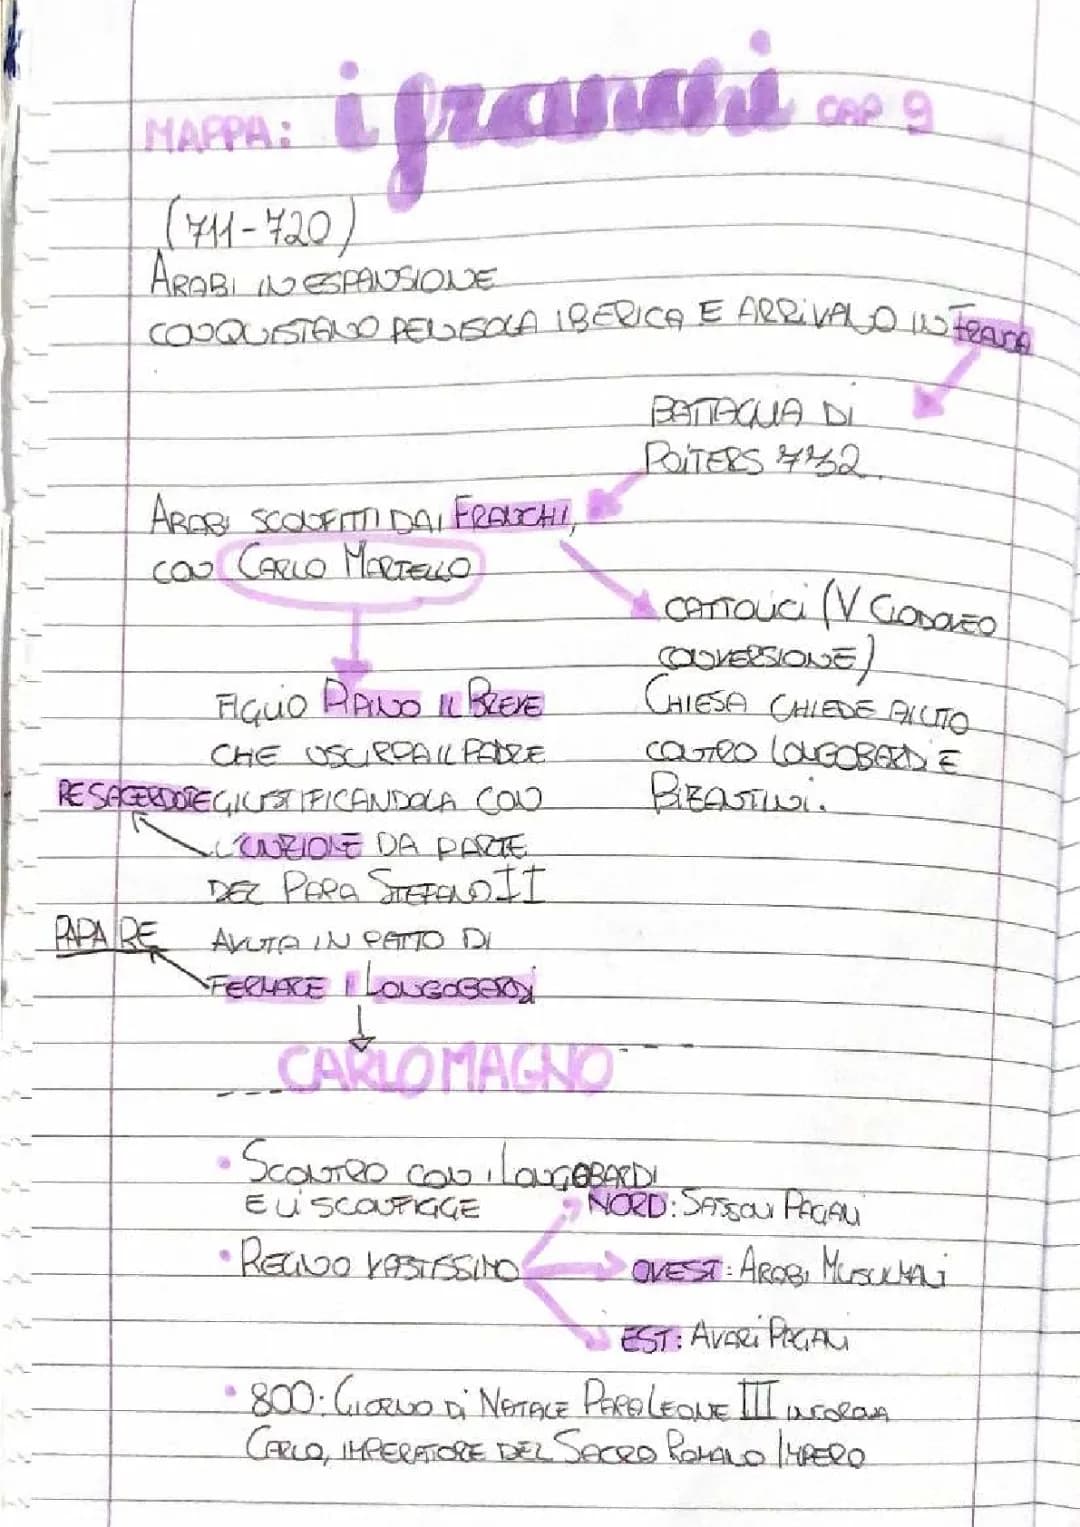 MAPPA: i franchi CAP 9
(711-720)
ARABI IN ESPANSIONE
CONQUISTANO PENISOLA IBERICA E ARRIVANO IN FRANCIA
BATTAGLIA DI
POITERS 732
ARABI SCONFITTI DAI FRANCHI,
CON CARLO MARTELLO
CATTOLICI (V CLODOVEO
CONVERSIONE)
CHIESA CHIEDE AIUTO
CONTRO LONGOBARDI E
BIZANTINI.
FIGLIO PIPINO IL BREVE
CHE USURPA IL PADRE
RE SACERDOTE GIUSTIFICANDOLA CON
L'UNZIONE DA PARTE
DEL PAPA STEFANO II
PAPA RE AVUTA IN PATTO DI
FERMARE I LONGOBARDI
CARLO MAGNO
• SCONTRO CON I LONGOBARDI
E LI SCONFIGGE
NORD: SASSONI PAGANI
• REGNO VASTISSIMO
OVEST: ARABI MUSULMANI
EST: AVARI PAGANI
• 800: GIORNO DI NATALE PAPA LEONE III INCORONA
CARLO, IMPERATORE DEL SACRO ROMANO IMPERO